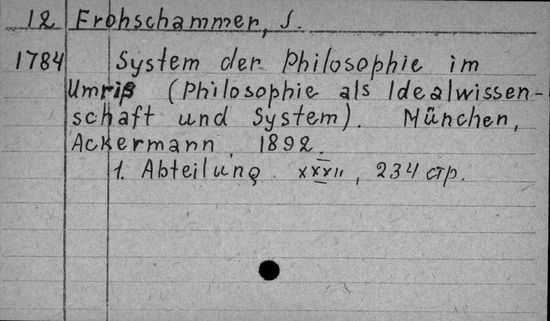 12 Frohschammer, J.
1784 System der Philosophie im
Umriß (Philosophie als Idealwissen-
schaft und System). München,
Ackermann, 1892.
1. Abteilung. XXXII, 234 стр.